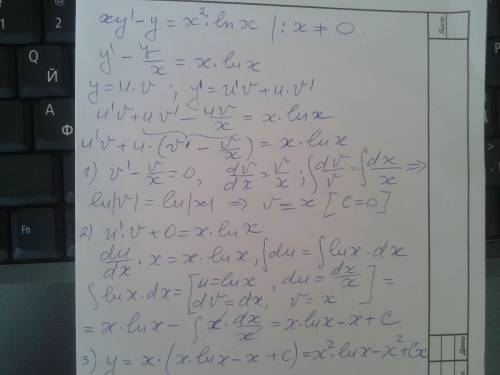 xy' - y = x²·lnx |: x ≠ 0.
y' - y/x = x·lnx
y = u·v ; y' = u'v + u·v'
u'v + uv' - uv/x = x·lnx
u'v + u·(v' - v/x) = x·lnx
1) v' - v/x = 0, dv/dx = v/x ; ∫dv/v = ∫dx/x ⇒
ln|v| = ln|x| ⇒ v = x [C=0]
2) u'·v + 0 = x·lnx
du/dx · x = x·lnx, ∫du = ∫lnx·dx
∫lnx·dx = [u = lnx, du = dx/x
dv = dx, v = x] =
= x·lnx - ∫x·dx/x = x·lnx - x + C
3) y = x·(x·lnx - x + C) = x²·lnx - x² + Cx
Й
Ц
Ф
А
1
2
Лист
Дата